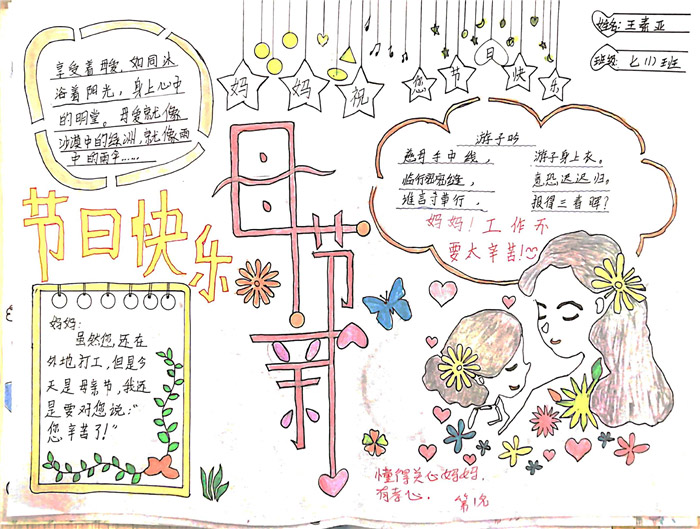 姓名:王素亚
班级:七(1)班
妈妈祝您节日快乐
享受着母爱,如同沐
浴着阳光,身上心中
的明堂。母爱就像
沙漠中的绿洲,就像雨
中的雨伞……
游子吟
慈母手中线, 游子身上衣。
临行密密缝, 意恐迟迟归。
谁言寸草行, 报得三春晖?
妈妈!工作不
要太辛苦!
母
节
亲
节日快乐
妈妈:
虽然您还在
外地打工,但是今
天是母亲节,我还
是要对您说:“
您辛苦了!”
懂得关心妈妈,
有孝心.